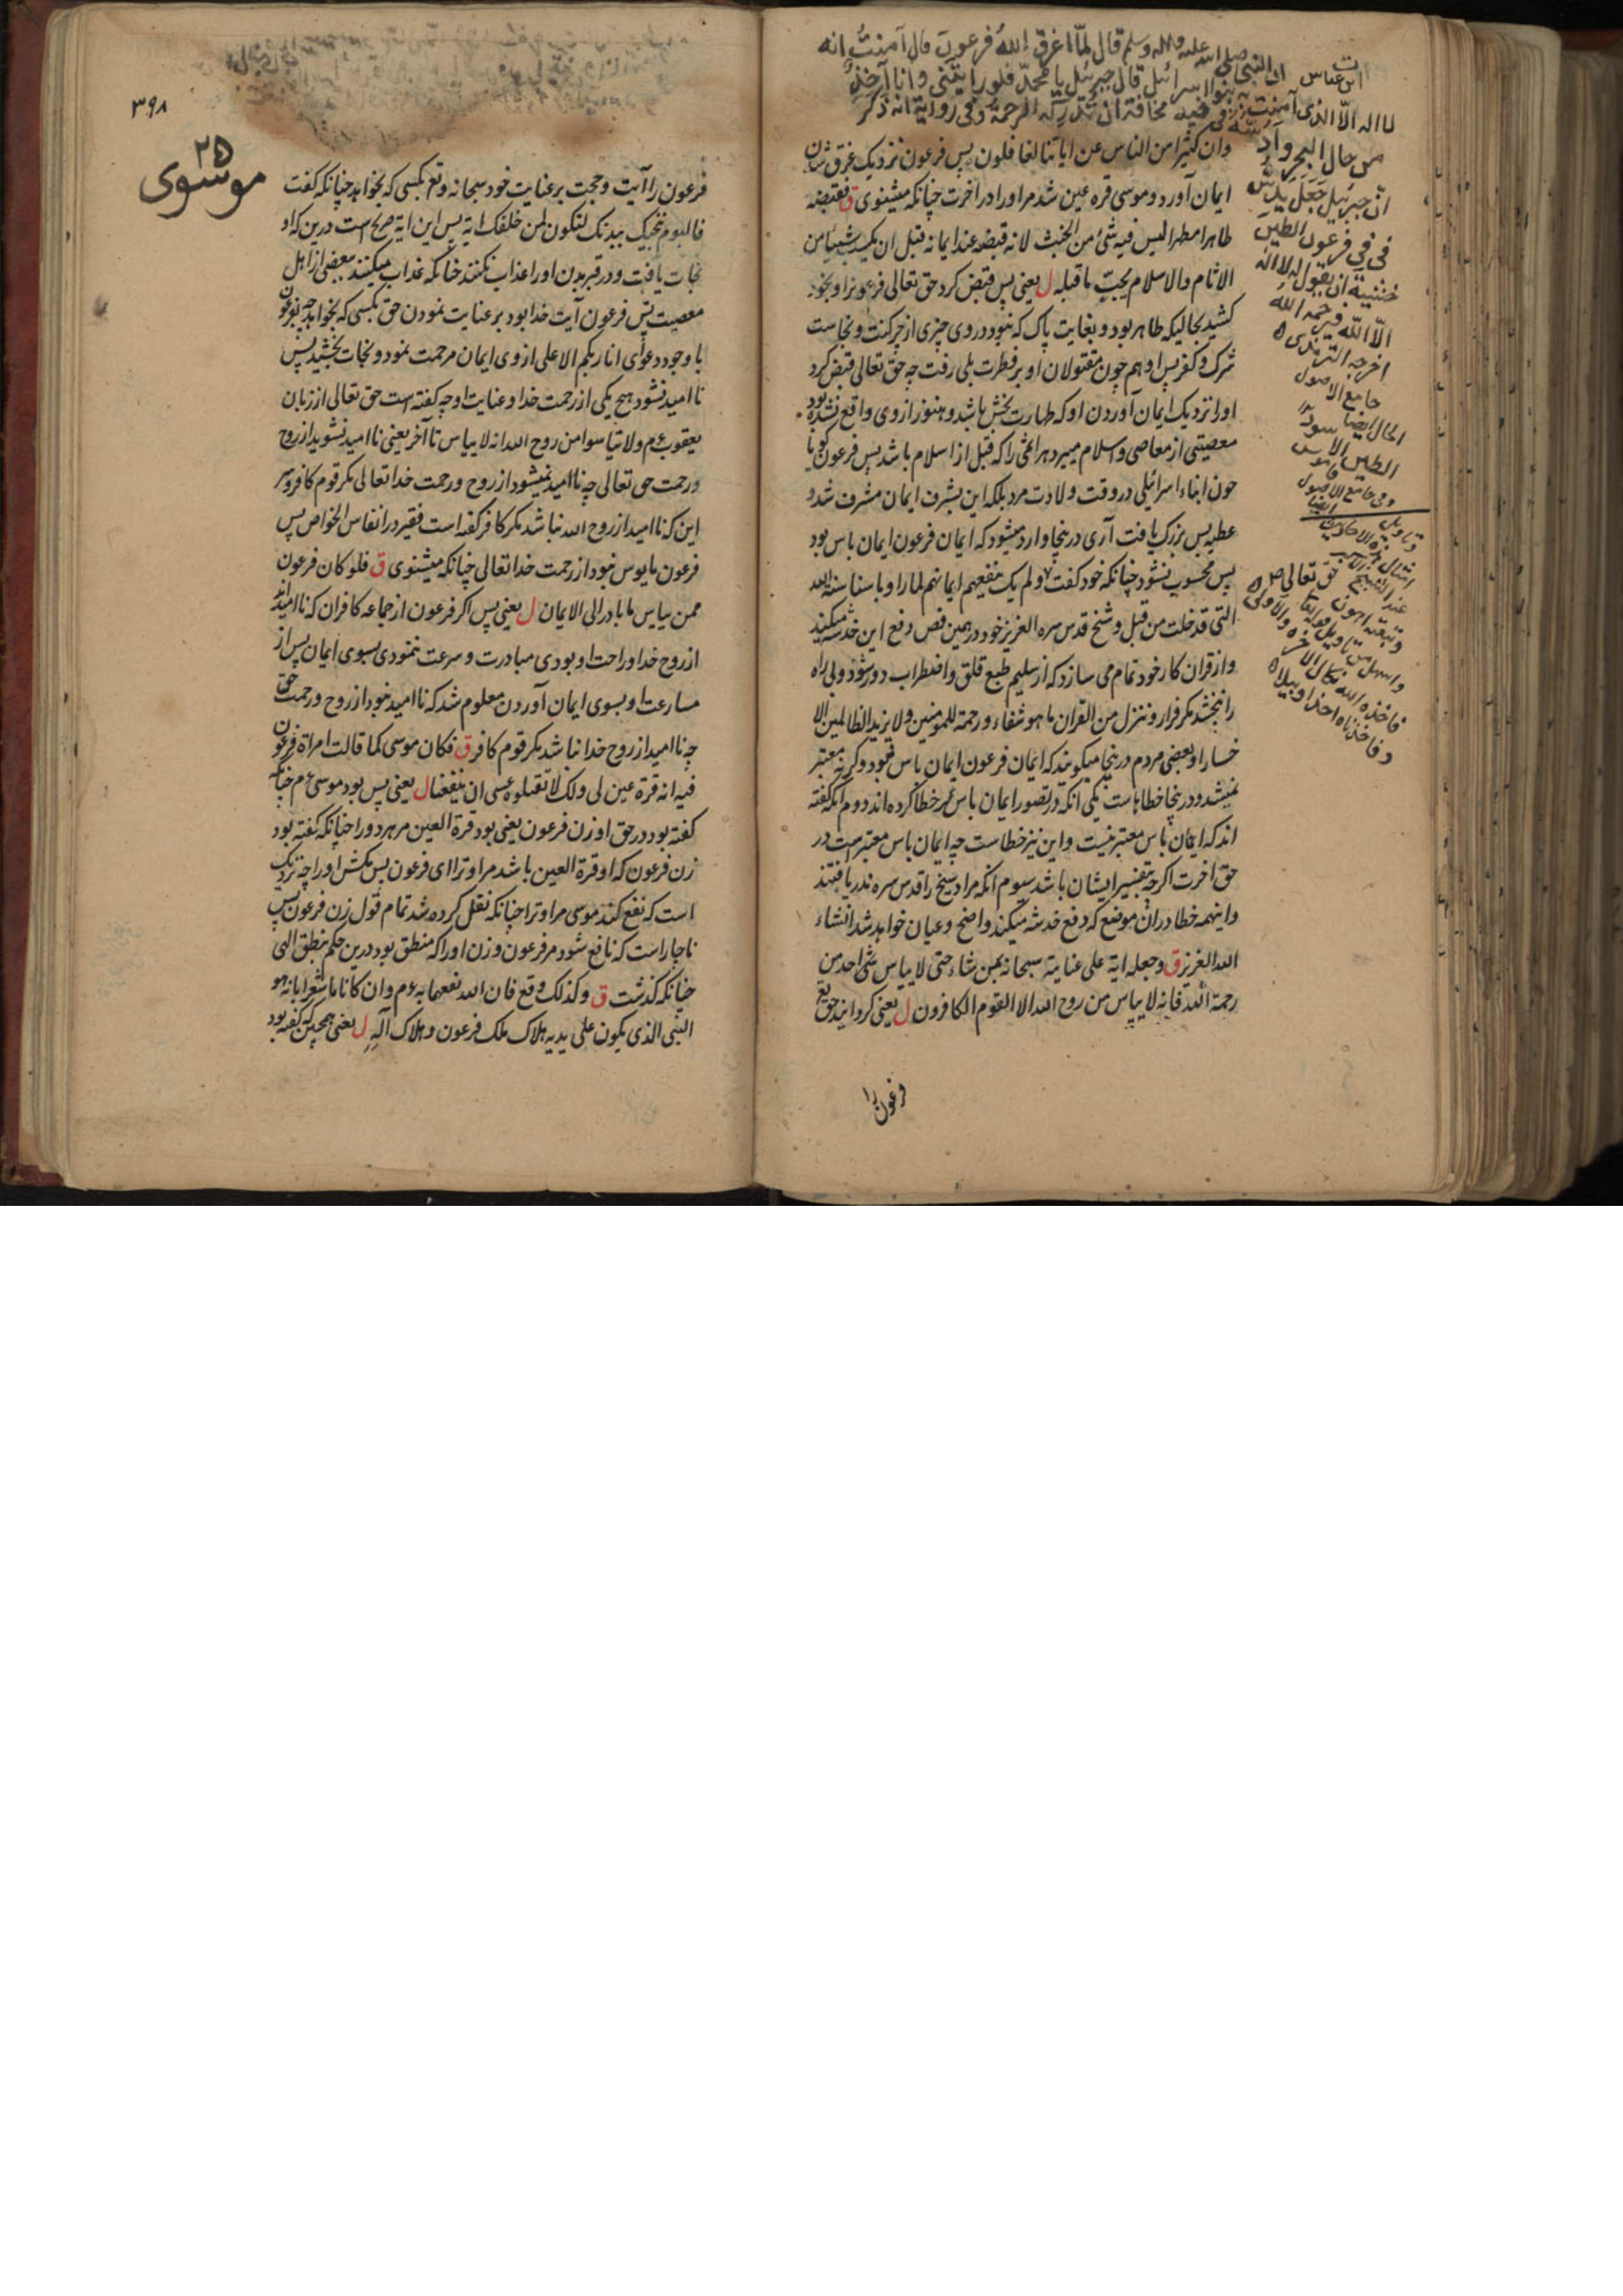 ابن عباس ان النبی صلی الله علیه وآله وسلم قال لمّا اغرق الله فرعون قال آمنت انه
لا اله الّا الذی آمنت به بنوا اسرائیل قال جبرئیل یا محمّد فلو رایتنی وانا آخذ
من حال البحر وادسّه فی فیه مخافة ان تدرکه الرحمة وفی روایة انه ذکر
انّ جبرئیل جعل یدسّ
فی فی فرعون الطین
خشیة ان یقول لا اله
الّا الله فیرحمه الله
اخرجه الترمذی
جامع الاصول
الحال ایضا
الطین الاسود
وفی جامع الاصول
فاخذه الله نکال الآخرة والاولی
وفاخذناه اخذا وبیلا
وان کثیرا من الناس عن ایاتنا لغافلون پس فرعون نزدیک غرق شان
ایمان آورد و موسی قره عین شد مر او را در اخرت چنانکه میشنوی ق فقبضه
طاهرا مطهرا لیس فیه شئ من الخبث لانه قبضه عند ایمانه قبل ان یکسب شیئا من
الاثام والاسلام یجبّ ما قبله ل یعنی پس قبض کرد حق تعالی فرعونرا و بخود
کشید بحالیکه طاهر بود و بغایت پاک که نبود در وی چیزی از چرکنت و نجاست
شرک و کفر پس او هم چون مقتولان او بر فطرت بلی رفت چه حق تعالی قبض کرد
او را نزدیک ایمان آوردن او که طهارت بخش باشد و هنوز از وی واقع نشده بود
معصیتی از معاصی و اسلام میبرد هر اثمی را که قبل از اسلام باشد پس فرعون گویا
چون ابناء اسرائیلی در وقت ولادت مرد بلکه این بشرف ایمان مشرف شد و
عطیه بس بزرگ یافت آری درینجا وارد میشود که ایمان فرعون ایمان باس بود
پس محسوب نشود چنانکه خود گفت ولم یک ینفعهم ایمانهم لما راوا باسنا سنة الله
التی قد خلت من قبل و شیخ قدس سره العزیز خود در همین فص دفع این خدشه میکند
و از قران کار خود تمام می سازد که از سلیم طبع قلق و اضطراب دور شود و بی راه
را نبخشد مگر فرار و ننزل من القران ما هو شفاء ورحمة للمومنین ولا یزید الظالمین الا
خسارا و بعضی مردم درینجا میگویند که ایمان فرعون ایمان باس نبود و گرنه معتبر
نمیشد و درینجا خطاهاست یکی انکه در تصور ایمان باس خطا کرده اند دوم آنکه گفته
اند که ایمان باس معتبر نیست و این نیز خطاست چه ایمان باس معتبر است در
حق اخرت اگرچه بتفسیر ایشان باشد سیوم انکه مراد شیخ را قدس سره ندریافتند
و اینهمه خطا در ان موضع که دفع خدشه میکند واضح و عیان خواهد شد انشاء
الله العزیز ق وجعله ایة علی عنایته سبحانه بمن شاء حتی لا ییاس شئ احد من
رحمة الله فانه لا ییاس من روح الله الا القوم الکافرون ل یعنی گردانید حق تع
فرعون را
۳۹۸
۲۵
موسوی
فرعون را آیت و حجت بر عنایت خود سبحانه وتع بکسی که بخواهد چنانکه گفت
فالیوم ننجیک ببدنک لتکون لمن خلفک ایة پس این ایة صریح است درین که او
نجات یافت و در قبر بدن او را عذاب نکنند چنانکه عذاب میکنند بعضی از اهل
معصیت پس فرعون آیت خدا بود بر عنایت نمودن حق بکسی که بخواهد چه بفرعون
با وجود دعوای انا ربکم الاعلی از وی ایمان مرحمت نمود و نجات بخشید پس
نا امید نشود هیچ یکی از رحمت خدا و عنایت او چه گفته است حق تعالی از زبان
یعقوب ع م ولا تیاسوا من روح الله انه لا ییاس تا آخر یعنی نا امید نشوید از روح
و رحمت حق تعالی چه نا امید نمیشود از روح و رحمت خدا تعالی مگر قوم کافر و سر
این که نا امید از روح الله نباشد مگر کافر گفته است فقیر در انفاس الخواص پس
فرعون مایوس نبود از رحمت خدا تعالی چنانکه میشنوی ق فلو کان فرعون
ممن ییاس ما بادر الی الایمان ل یعنی پس اگر فرعون از جماعه کافران که نا امید اند
از روح خدا و راحت او بودی مبادرت و سرعت ننمودی بسوی ایمان پس از
مسارعت او بسوی ایمان آوردن معلوم شد که نا امید نبود از روح و رحمت حق
چه نا امید از روح خدا نباشد مگر قوم کافر ق فکان موسی کما قالت امراة فرعون
فیه انه قرة عین لی ولک لا تقتلوه عسی ان ینفعنا ل یعنی پس بود موسی ع م چنانکه
گفته بود در حق او زن فرعون یعنی بود قرة العین مر هر دو را چنانکه گفته بود
زن فرعون که او قرة العین باشد مرا و ترا ای فرعون پس مکش او را چه نزدیک
است که نفع کند موسی مرا و ترا چنانکه نقل کرده شد تمام قول زن فرعون پس
ناچار است که نافع شود مر فرعون و زن او را که منطق بود درین حکم بنطق الهی
چنانکه گذشت ق وکذلک وقع فان الله نفعهما به ع م وان کانا ما شعرا بانه هو
النبی الذی یکون علی یدیه هلاک ملک فرعون وهلاک آله ل یعنی همچنین که گفته بود